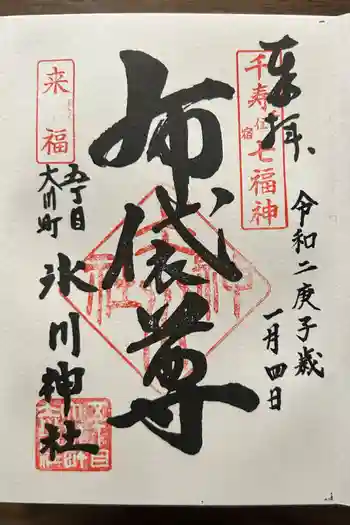 奉拝、
千寿七福神
住宿
令和二庚子歳
一月四日
布袋尊
来福
五丁目
大川町
氷川神社